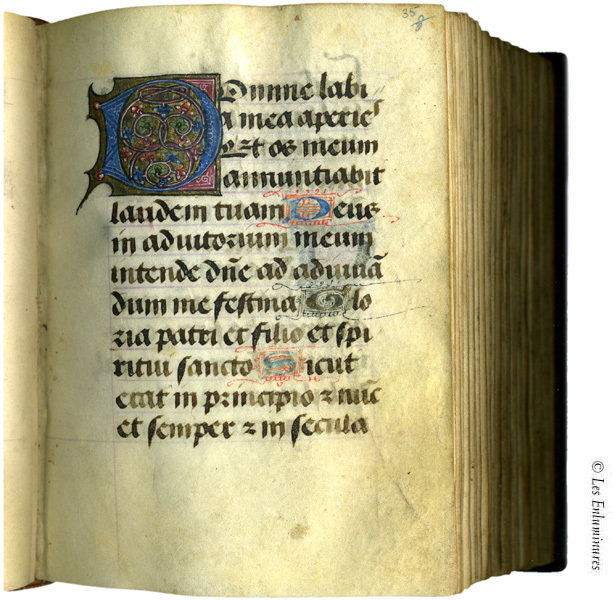 35
Domine labi
a mea aperies
Et os meum
annuntiabit
laudem tuam Deus
in adiutorium meum
intende dñe ad adiuuā
dum me festina Glo
ria patri et filio et spi
ritui sancto Sicut
erat in principio ⁊ nūc
et semper ⁊ in secula
© Les Enluminures